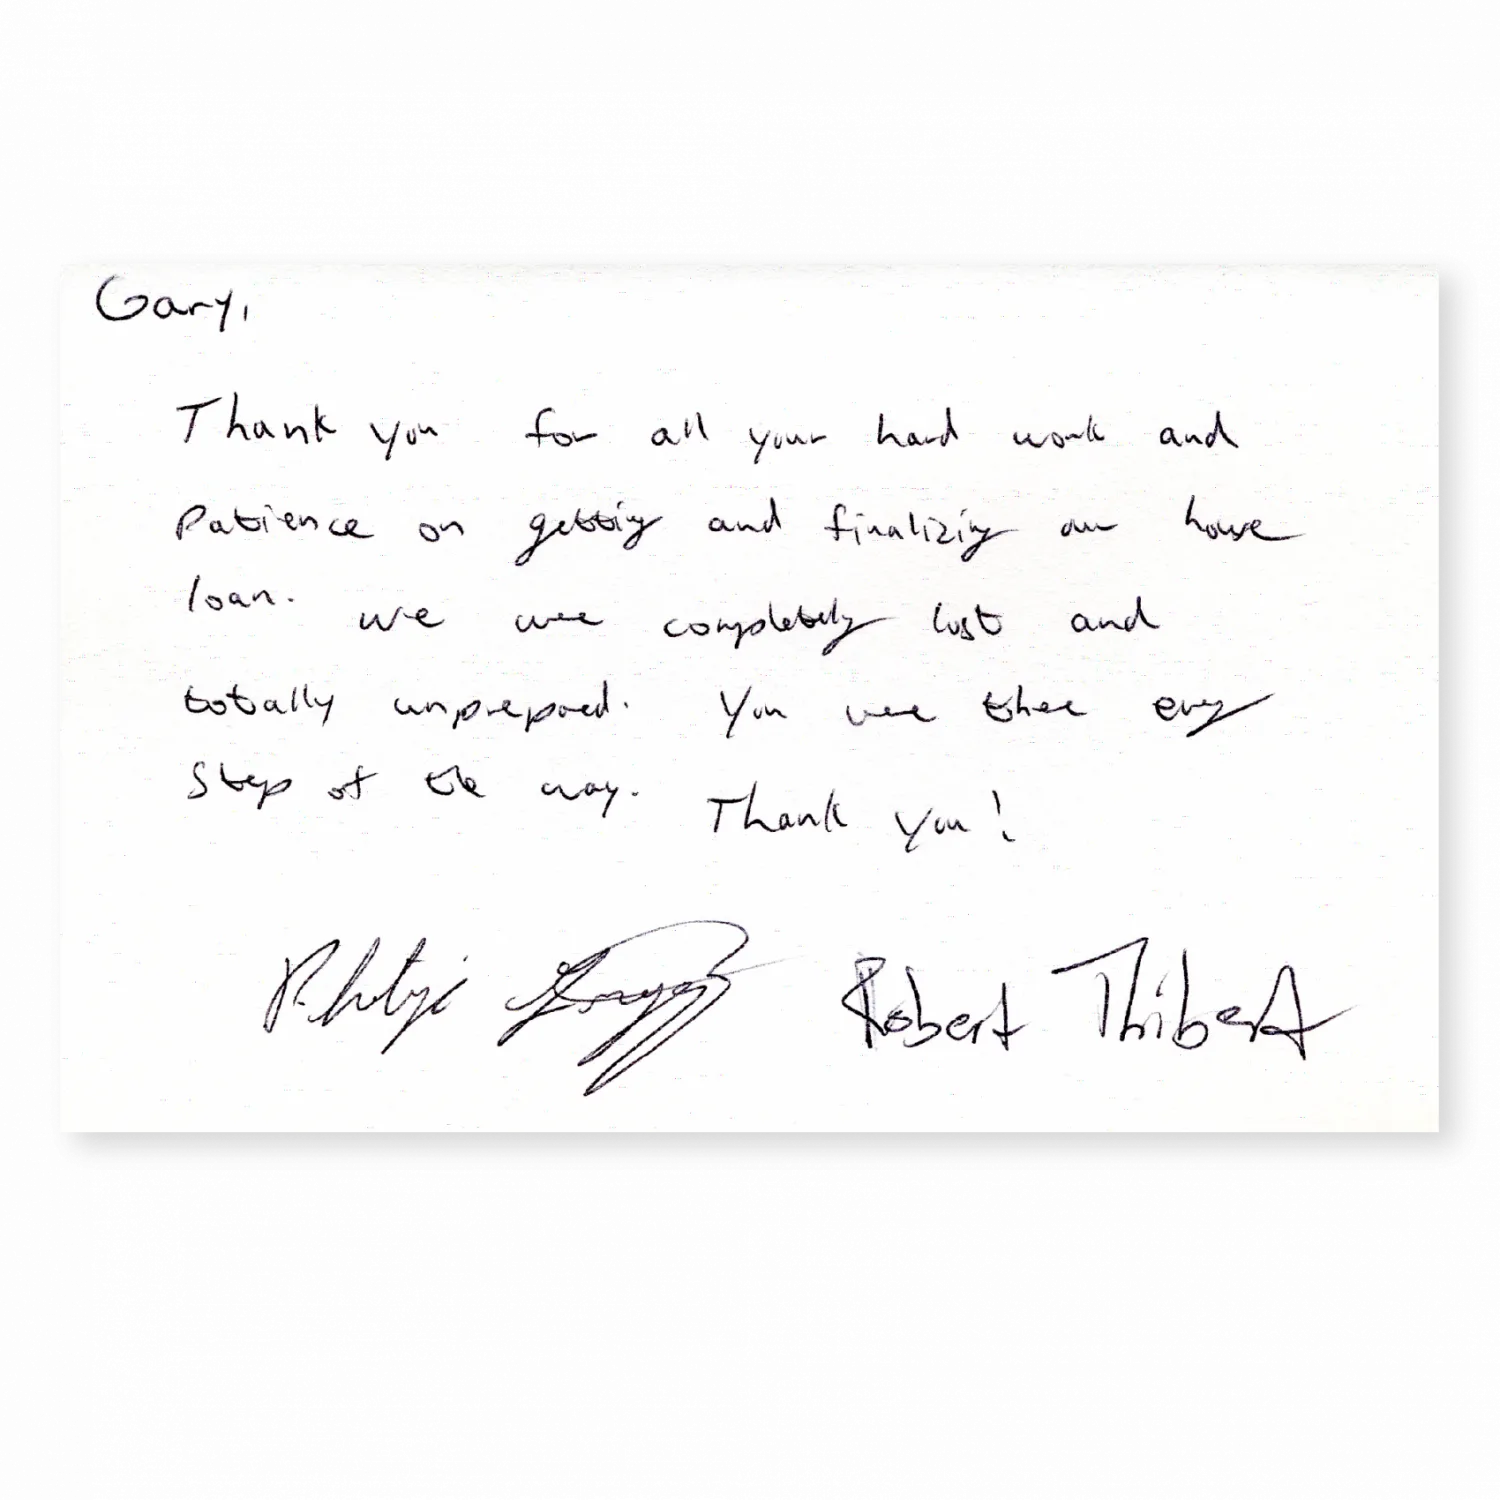 Gary,
Thank you for all your hard work and
Patience on getting and finalizing our house
loan. We were completely lost and
totally unprepared. You were there every
Step of the way. Thank you!
Robert Thibert